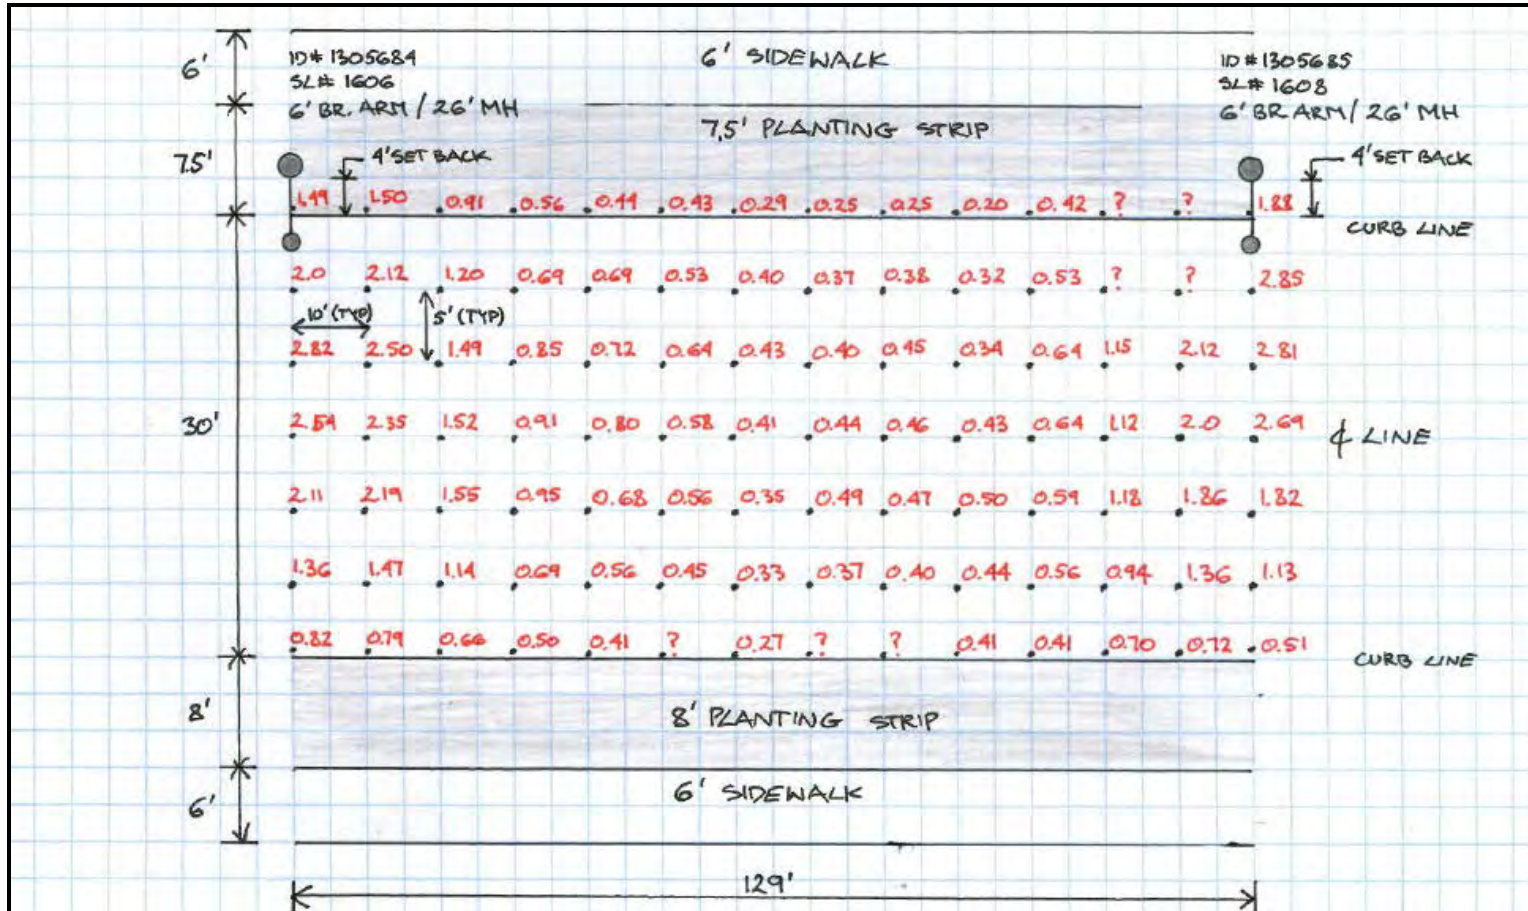 6' SIDEWALK
ID# 1305684
SL# 1606
6' BR. ARM / 26' MH
ID # 1305685
SL# 1608
6' BR ARM / 26' MH
6'
7.5' PLANTING STRIP
7.5'
4' SET BACK
4' SET BACK
1.49 1.50 0.91 0.56 0.44 0.43 0.29 0.25 0.25 0.20 0.42 ? ? 1.88
CURB LINE
2.0 2.12 1.20 0.69 0.69 0.53 0.40 0.37 0.38 0.32 0.53 ? ? 2.85
10' (TYP)
5' (TYP)
2.82 2.50 1.49 0.85 0.72 0.64 0.43 0.40 0.45 0.34 0.64 1.15 2.12 2.81
30'
2.54 2.35 1.52 0.91 0.80 0.58 0.41 0.44 0.46 0.43 0.64 1.12 2.0 2.69
℄ LINE
2.11 2.19 1.55 0.95 0.68 0.56 0.35 0.49 0.47 0.50 0.59 1.18 1.86 1.82
1.36 1.47 1.14 0.69 0.56 0.45 0.33 0.37 0.40 0.44 0.56 0.94 1.36 1.13
0.82 0.79 0.66 0.50 0.41 ? 0.27 ? ? 0.41 0.41 0.70 0.72 0.51
CURB LINE
8'
8' PLANTING STRIP
6'
6' SIDEWALK
129'